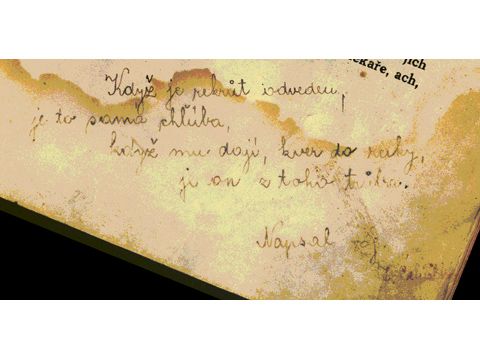 jich
ekaře, ach,
Když je rekrút odveden,
je to samá chlúba,
když mu dají, kver do ruky,
je on z toho
Napsal